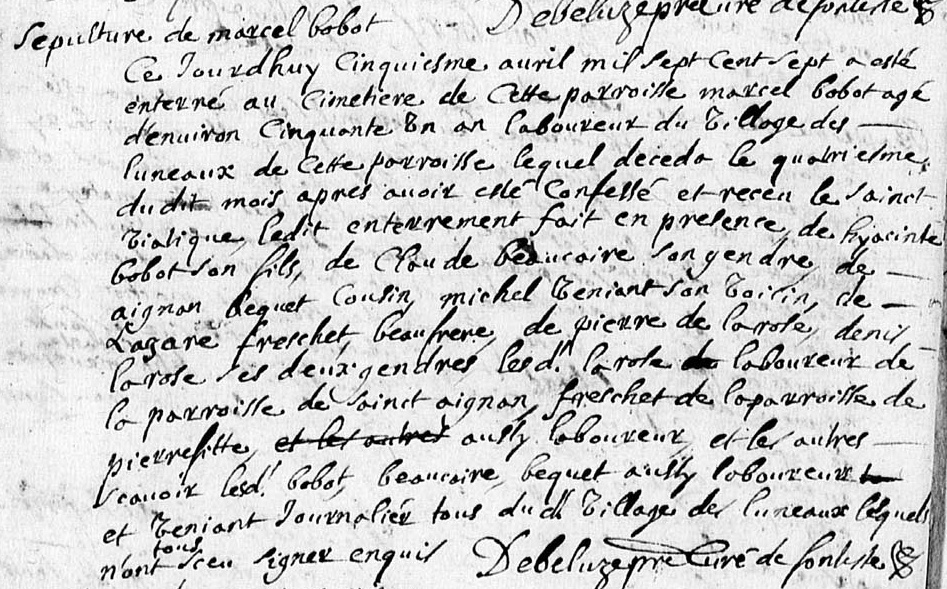 Debeluze pre Curé de fonteste
Sepulture de marcel bobot
Ce Jourdhuy Cinquiesme auril mil Sept Cent Sept a esté
enterré au Cimetiere de Cette parroisse marcel bobot agé
d'enuiron Cinquante Vn an laboureur du Village des
luneaux de Cette parroisse lequel deceda le quatriesme
dudit mois apres auoir esté Confessé et receu le Sainct
Viatique, ledit enterrement fait en presence, de hyacinte
bobot son fils, de Claude beaucaire Son gendre, de
aignan bequet Cousin, michel Veniant Son Voisin, de
Lazare freschet, beaufrere, de pierre de larose, denis
larose Ses deux gendres, lesd. larose laboureur de
la parroisse de Sainct aignan, freschet de la parroisse de
pierrefitte, et les autres aussy laboureur, et les autres
Scauoir lesd. bobot, beaucaire, bequet aussy laboureurs
et Veniant Journalier tous dud. Village des luneaux lesquels
n'ont tous Sceu Signer enquis Debeluze pre Curé de fonteste